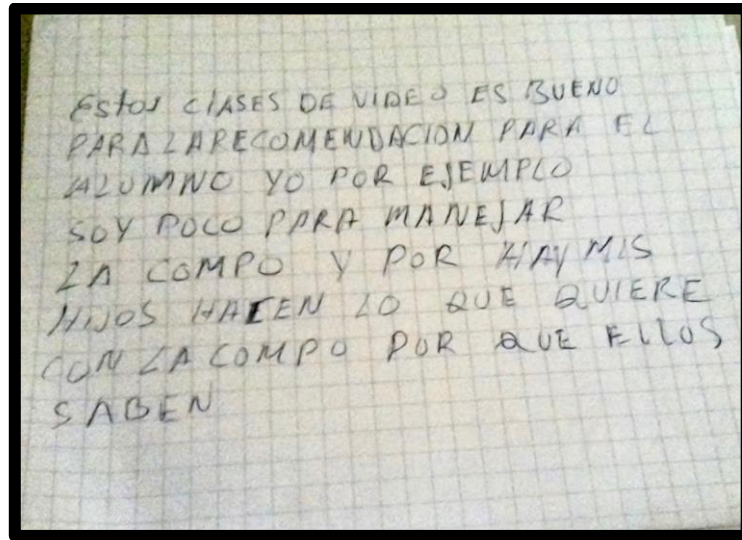 Estos clASES DE VIDEO ES BUENO
PARA LA RECOMENDACION PARA EL
ALUMNO YO POR EJEMPLO
SOY POCO PARA MANEJAR
LA COMPO Y POR HAY MIS
HIJOS HACEN LO QUE QUIERE
CON LA COMPO POR QUE ELLOS
SABEN